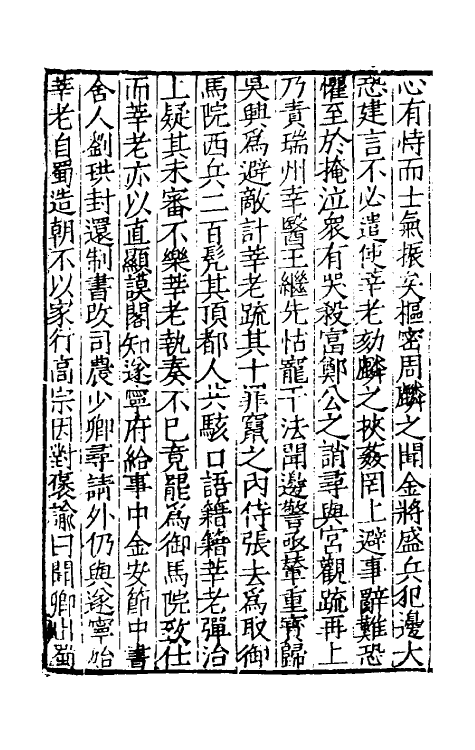 心有恃而士氣振矣樞密周麟之聞金將盛兵犯邊大
恐建言不必遣使莘老劾麟之挾姦罔上避事辭難恐
懼至於掩泣衆有哭殺富鄭公之誚尋與宮觀疏再上
乃責瑞州幸醫王繼先怙寵干法聞邊警亟輦重寳歸
吳興爲避敵計莘老疏其十罪竄之內侍張去爲取御
馬院西兵二百髠其頂都人共駭口語籍籍莘老彈治
上疑其未審不樂莘老執奏不已竟罷爲御馬院致仕
而莘老亦以直顯謨閣知遂寧府給事中金安節中書
舍人劉珙封還制書改司農少卿尋請外仍與遂寧始
莘老自蜀造朝不以家行高宗因對褒諭曰聞卿出蜀